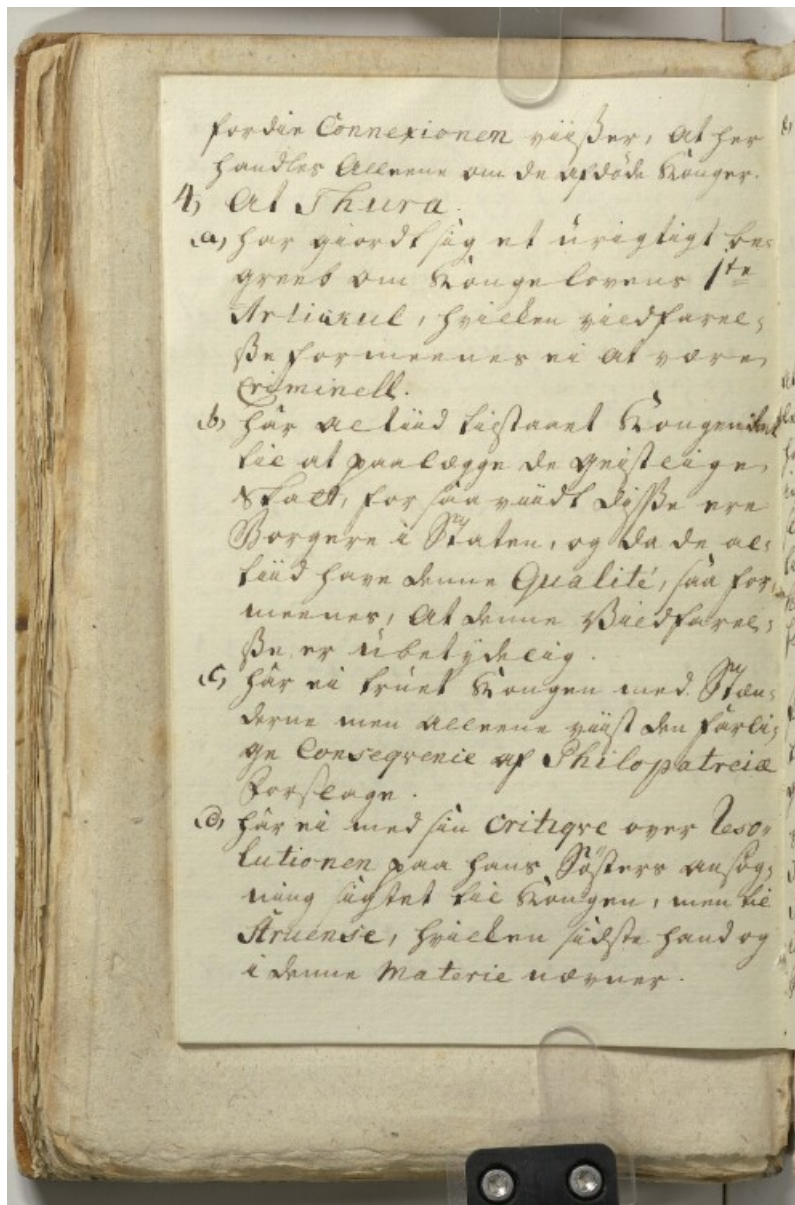 fordie Connexionen viisßer, at her
handles alleene om de afdöde Konger.
4, At Thura.
a, har giordt sig et urigtigt be-
greeb om Kongelovens 1te
Articul, hvilken vildfarel-
ße formeenes ei at være
Criminell.
b, har altiid tilstaaet Kongen
til at paalægge de geistlige
Skatt, for saa viidt disße ere
Borgere i Staten, og da de al-
tiid have denne Qualité, saa for-
meenes, at denne Vildfarel-
ße er ubetydelig.
c, har ei truet Kongen med Stæn-
derne men alleene viist den farli-
ge Conseqvenie af Philopatreiæ
Forslage.
d, har ei med sin Critiqve over Reso-
lutionen paa hans Sösters ansög-
ning sigtet til Kongen, men til
Struense, hvilken sidste hand og
i denne Materie nævner.